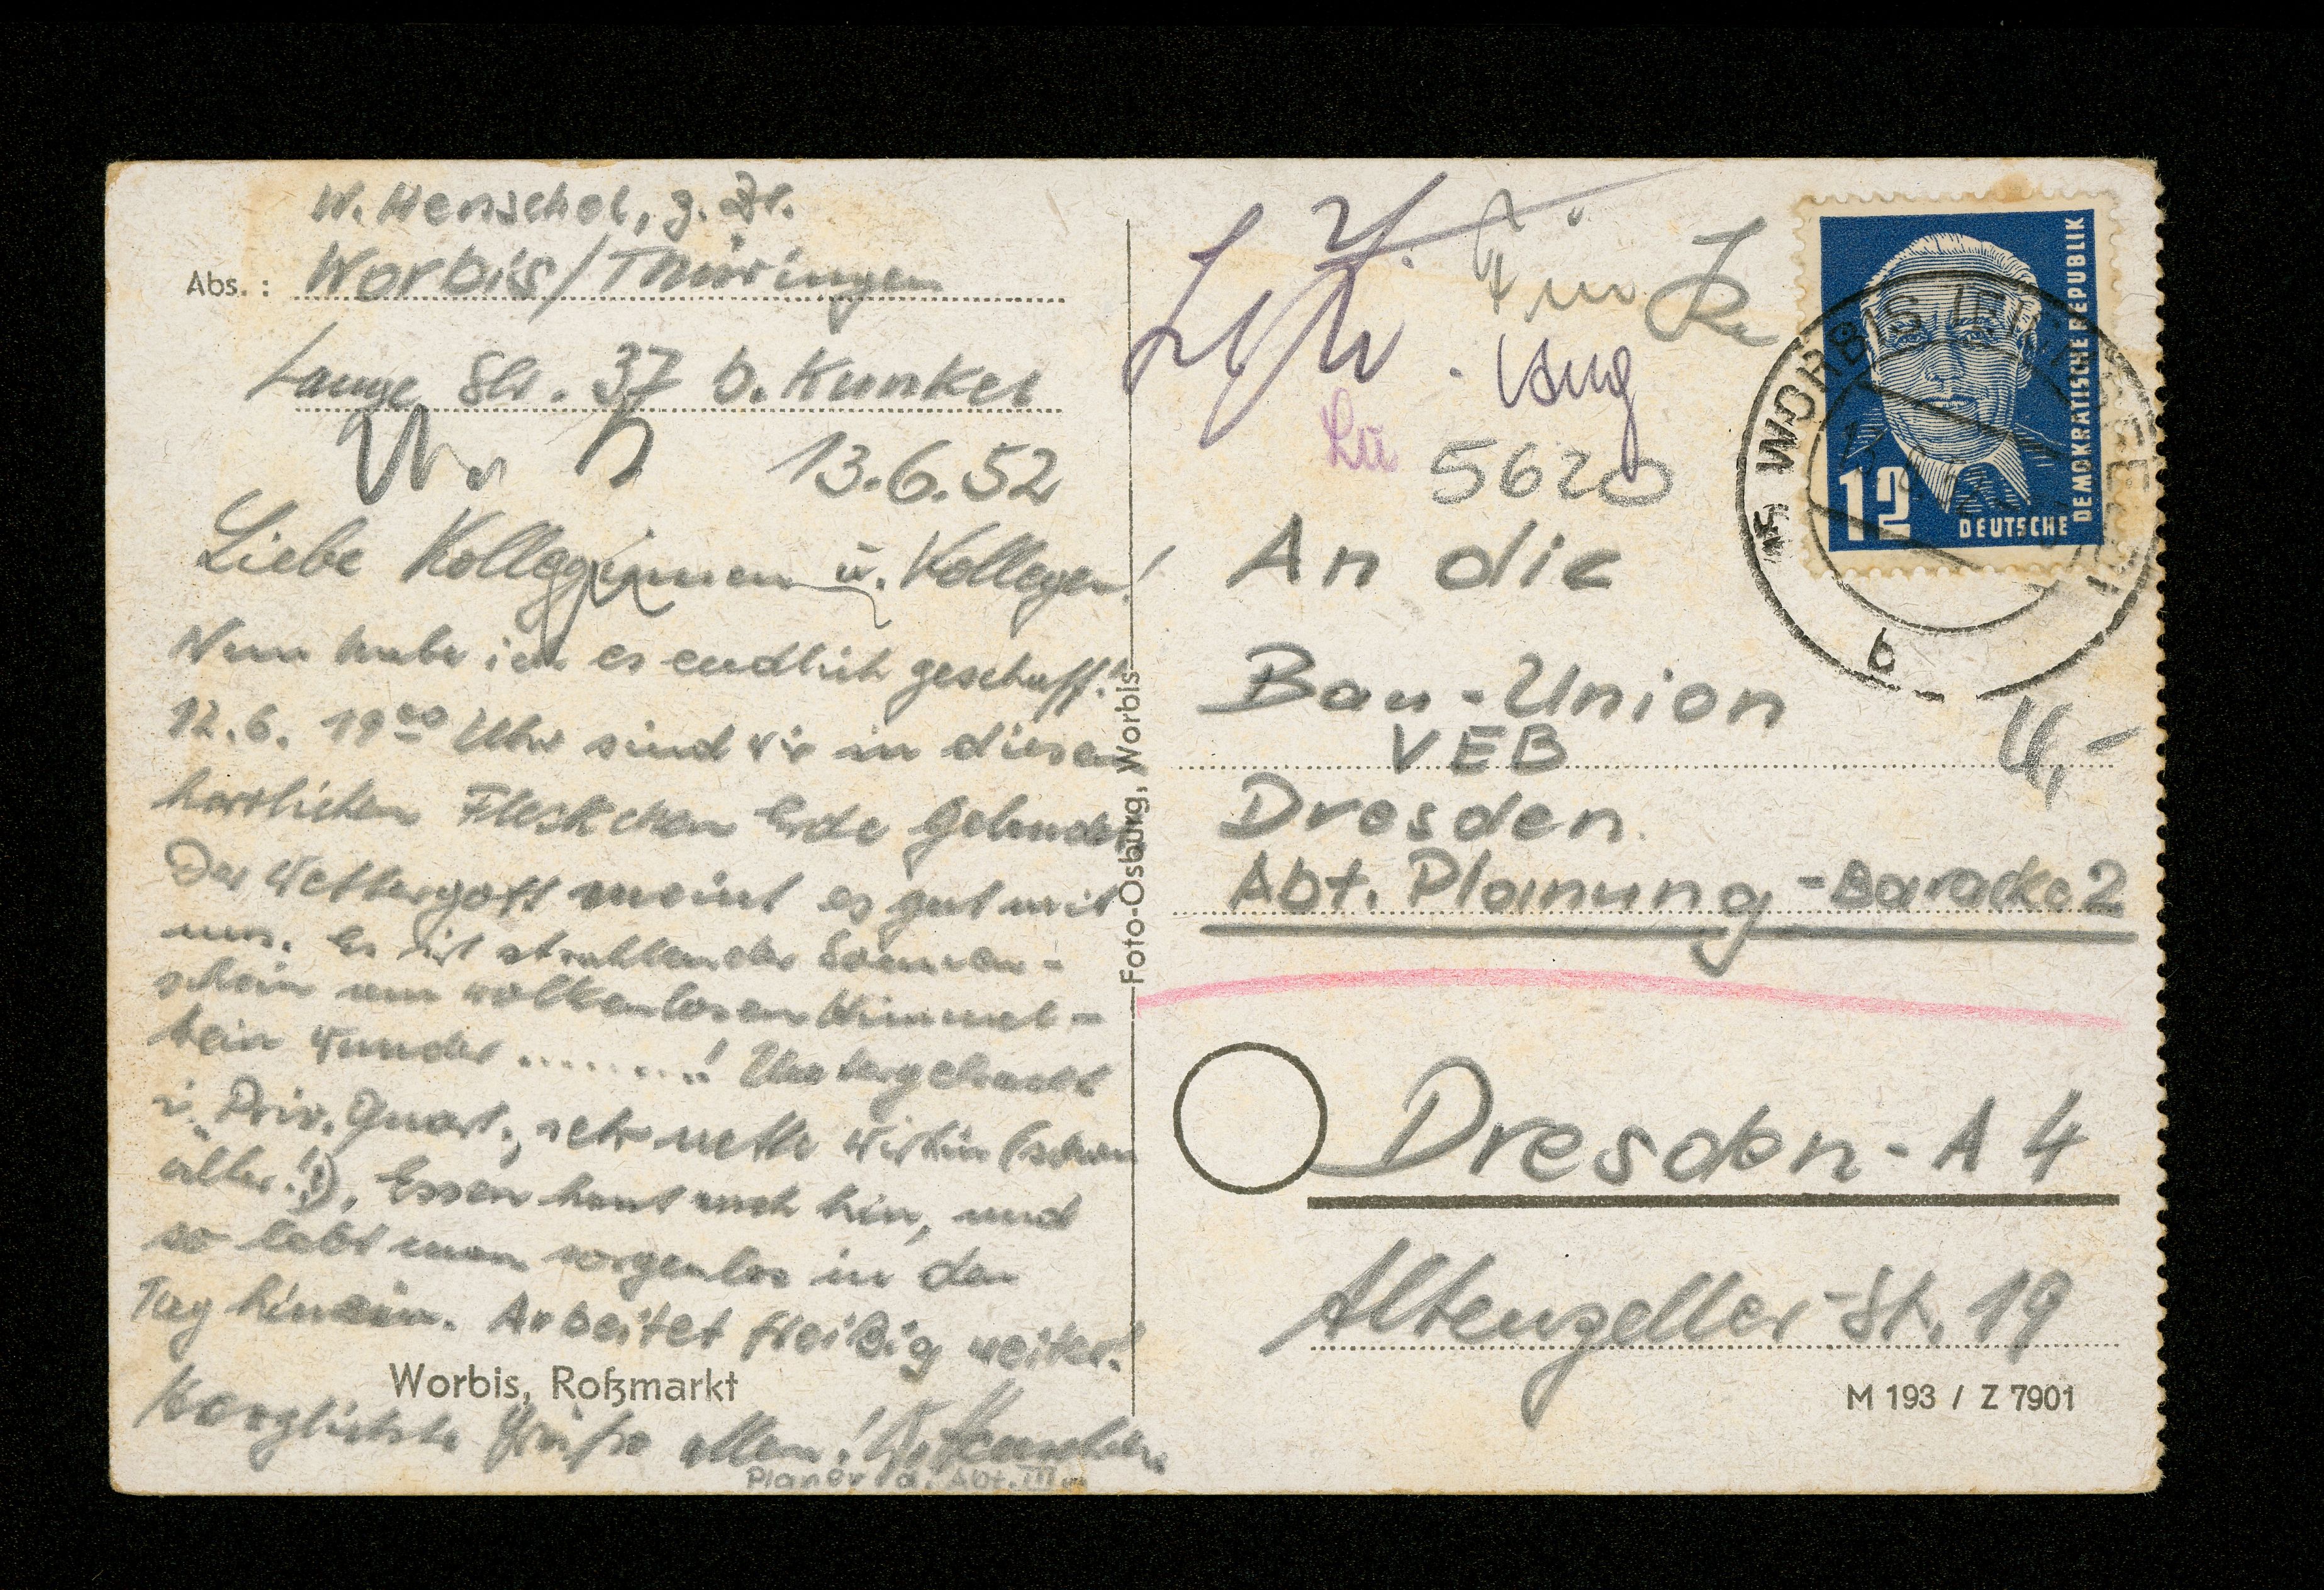 W. Henschel, z. Zt.
Abs.: Worbis/Thüringen
Lange Str. 37 b. Kunkel
13.6.52
Liebe Kolleginnen u. Kollegen!
Nun habe ich es endlich geschafft!
12.6. 19⁰⁰ Uhr sind wir in diesem
herrlichen Fleckchen Erde gelandet.
Der Wettergott meint es gut mit
uns. Es ist strahlender Sonnen-
schein am wolkenlosen Himmel-
kein Wunder ........! Untergebracht
i. Priv. Quart., sehr nette Wirtin (schon
älter!), Essen haut auch hin, und
so lebt man sorgenlos in den
Tag hinein. Arbeitet fleißig weiter!
Worbis, Roßmarkt
Herzlichste Grüße allen! W. Henschel
Planer d. Abt. III
Foto-Osburg, Worbis
Für
5620
An die
Bau-Union
VEB
Dresden
Abt. Planung - Baracke 2
Dresden-A 4
Altenzeller-St. 19
M 193 / Z 7901
12
DEUTSCHE
DEMOKRATISCHE REPUBLIK
WORBIS
b